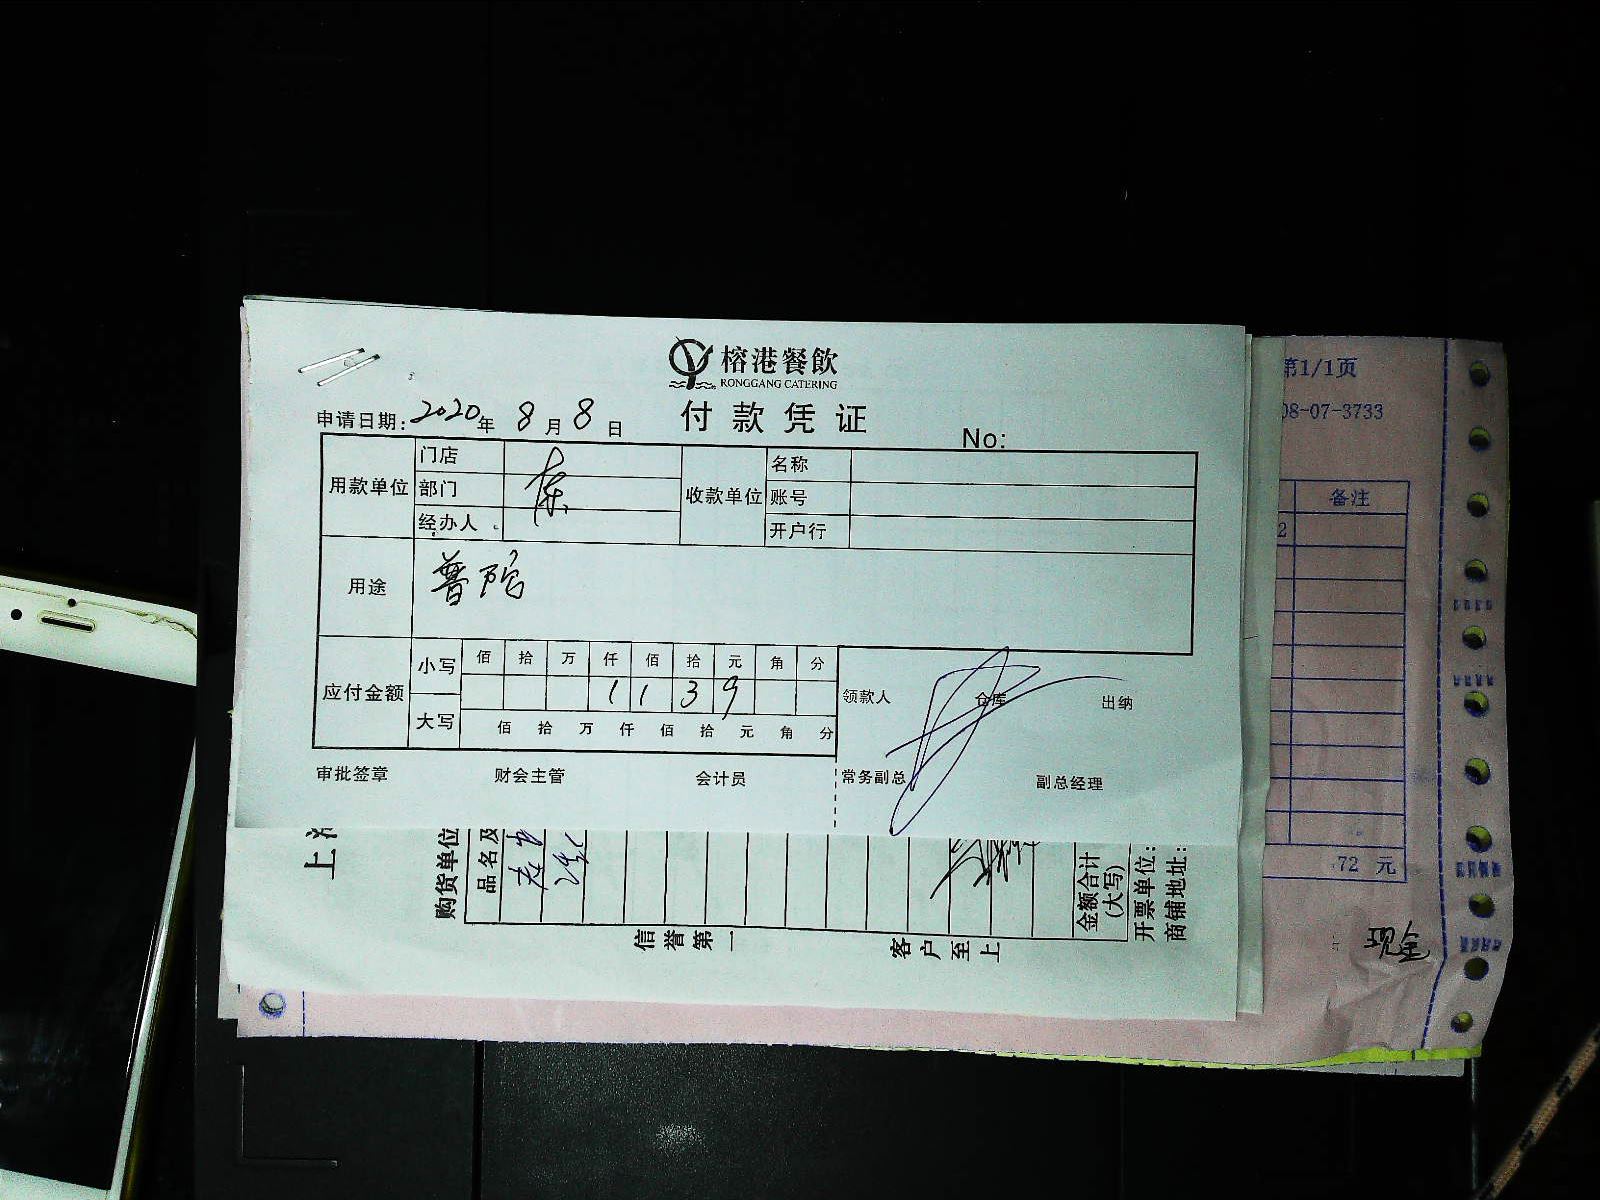 榕港餐飲
RONGGANG CATERING
付款凭证
申请日期: 2020年 8月 8日
No:
用款单位 门店 部门 经办人
收款单位 名称 账号 开户行
用途 普陀
应付金额 小写 佰 拾 万 仟 佰 拾 元 角 分
1 1 3 9
大写 佰 拾 万 仟 佰 拾 元 角 分
领款人 仓库 出纳
审批签章 财会主管 会计员 常务副总 副总经理
上
购货单位
品名及
信誉第一
客户至上
金额合计
(大写)
开票单位:
商铺地址:
第1/1页
08-07-3733
备注
2
72 元
现金